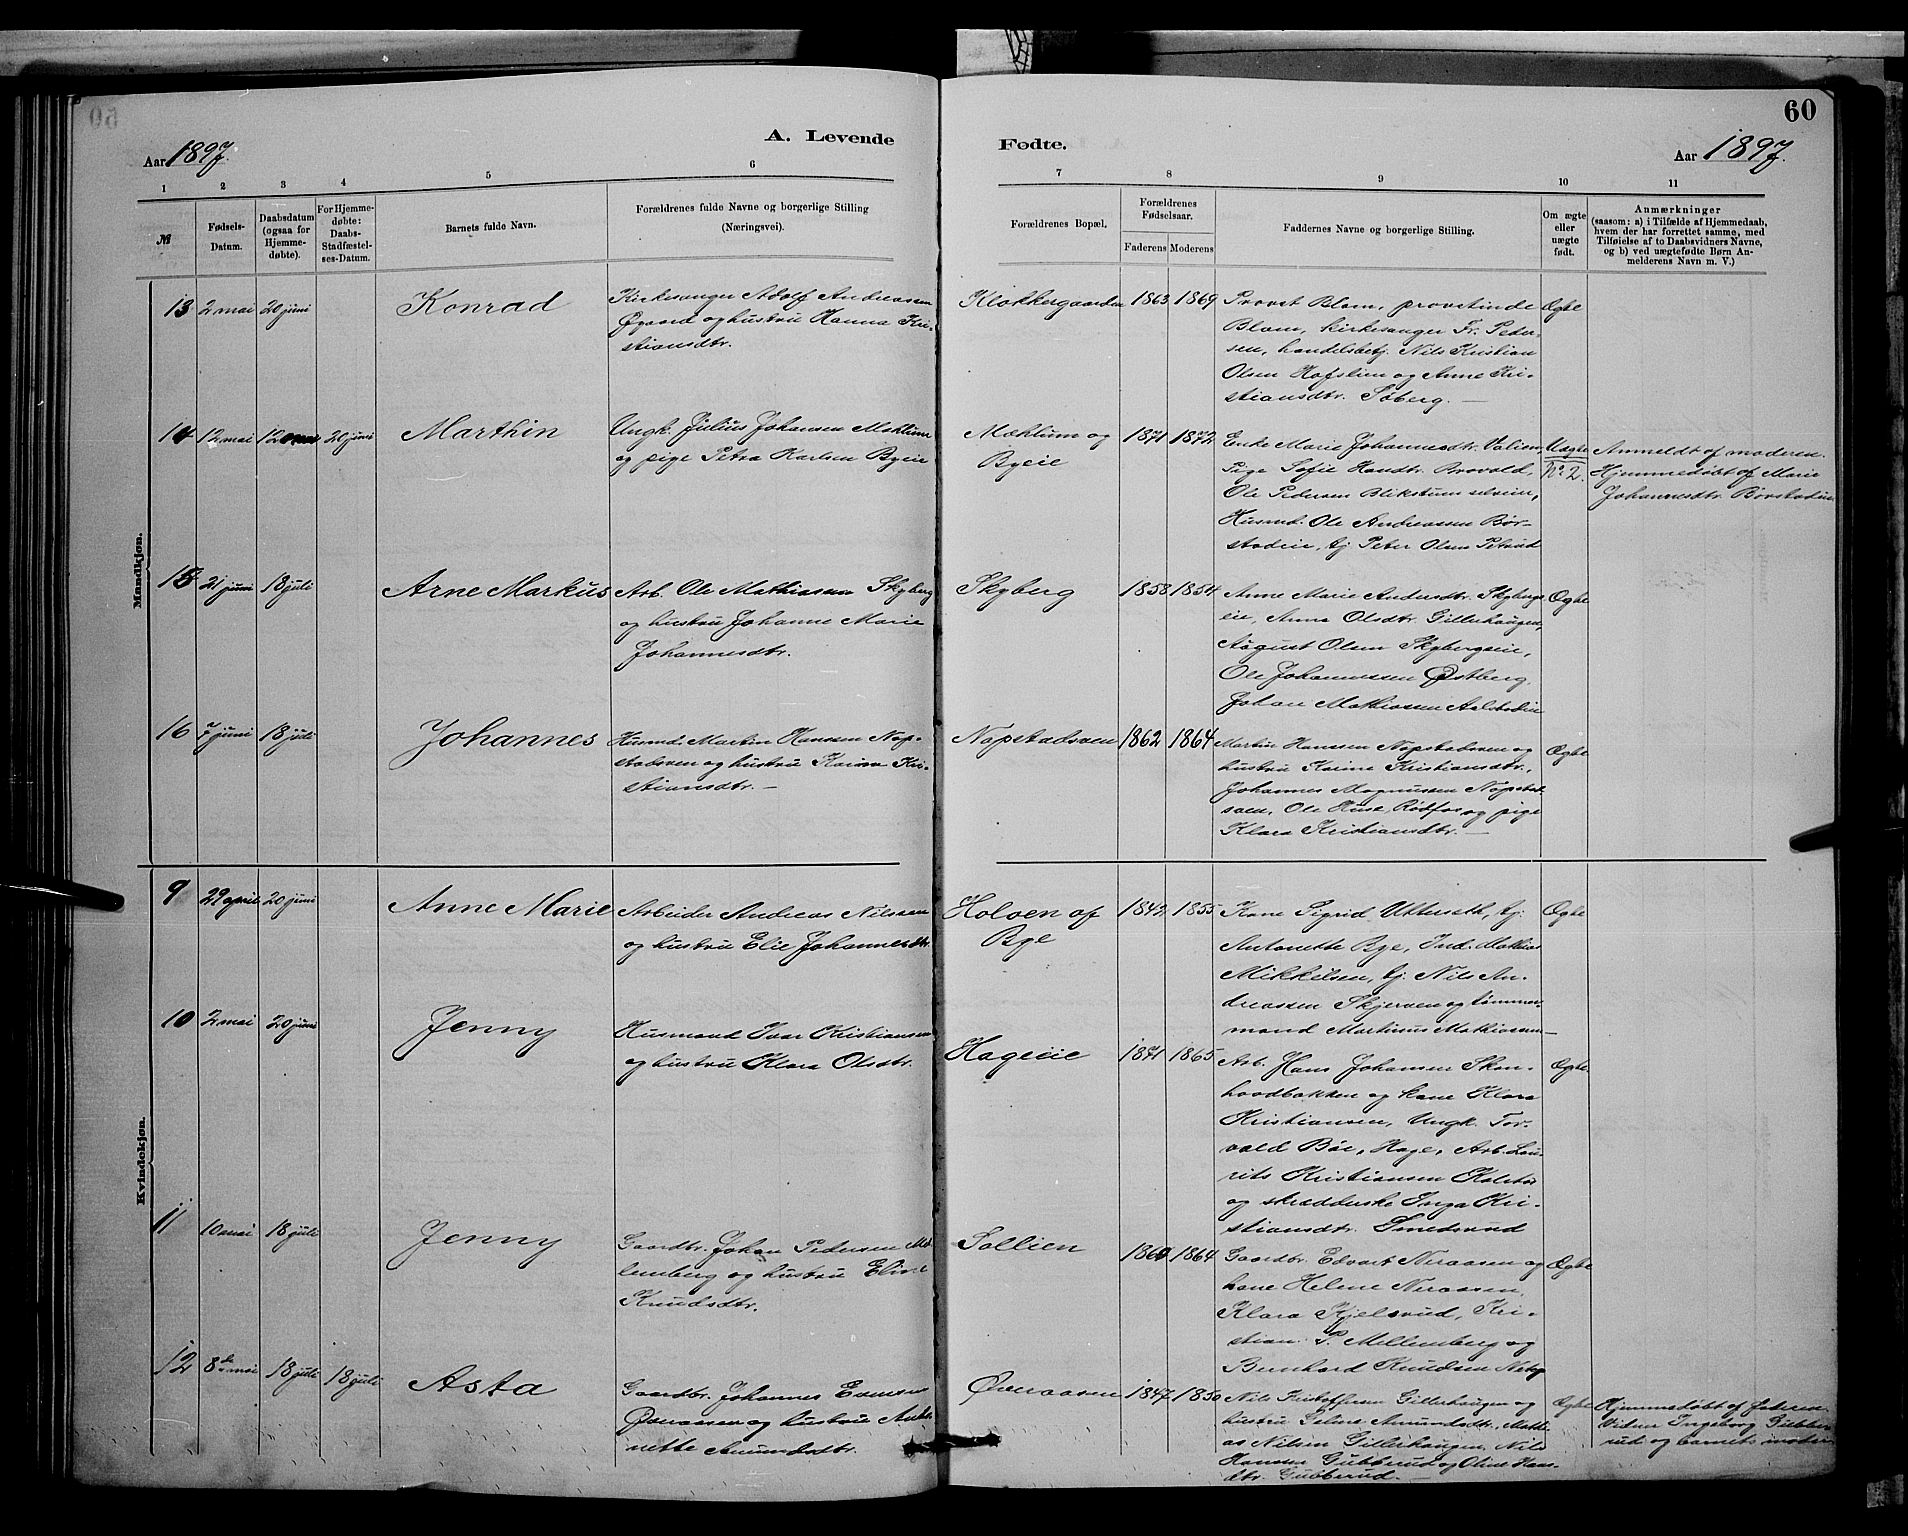 60
A. Levende
Fødte.
Aar 1897.
Aar 1897.
1 2 3 4 5 6
7 8 9 10 11
№
Fødsels-
Datum.
Daabsdatum
(ogsaa for
Hjemme-
døbte).
For Hjemme-
døbte:
Daabs-
Stadfæstel-
ses-Datum.
Barnets fulde Navn.
Forældrenes fulde Navne og borgerlige Stilling
(Næringsvei).
Forældrenes Bopæl.
Forældrenes
Fødselsaar.
Faderens Moderens
Faddernes Navne og borgerlige Stilling.
Om ægte
eller
uægte
født.
Anmærkninger
(saasom: a) i Tilfælde af Hjemmedaab,
hvem der har forrettet samme, med
Tilføielse af to Daabsvidners Navne,
og b) ved uægtefødte Børn An-
melderens Navn m. V.)
Mandkjøn.
13 2 mai 20 juni
Konrad
Kirkesanger Adolf Andreassen
Øgaard og hustru Hanna Kri-
stiansdtr.
Klokkergaarden
1863 1869
Provst Blom, provstinde
Blom, kirkesanger Fr. Peder-
sen, handelsbetj. Nils Kristian
Olsen Hofslien og Anne Kri-
stiansdtr. Søberg. —
Ægte
14 12 mai 20 juni
Marthin
Ungk. Julius Johansen Mæhlum
og pige Petra Karlsen Byeie
Mæhlum og
Byeie
1871 1872
Enke Marie Johannesdtr. Valien,
Pige Sofie Hansdtr. Brovold,
Ole Pedersen Blikstum selveier,
Husmd. Ole Andreassen Bør-
stadeie, tj. Peter Olsen Petrud
Uægte
No 2.
Anmeldt af moderen.
Hjemmedøbt af Marie
Johannesdtr. Børstadeie
15 21 juni 18 juli
Arne Markus
Arb. Ole Mathiassen Skyberg
og hustru Johanne Marie
Johannesdtr.
Skyberg
1858 1854
Anne Marie Andersdtr. Skybergs
eie, Anna Olsdtr. Gillerhaugen,
August Olsen Skybergseie,
Ole Johannessen Østberg,
Johan Mathiassen
Ægte
16 7 juni 18 juli
Johannes
Husmd. Martin Hanssen Nop-
stadsven og hustru Karine Kri-
stiansdtr. —
Nopstadsven
1862 1864
Martin Hanssen Nopstadsven og
hustru Karine Kristiansdtr.,
Johannes Magnussen Nopstad-
sven, Ole Huse, Rødfos og pige
Klara Kristiansdtr. —
Ægte
Kvindekjøn.
9 29 april 20 juni
Anne Marie
Arbeider Andreas Nilssen
og hustru Elie Johannesdtr.
Holoen af
Bye
1842 1855
Kone Sigrid Uttersæth, tj.
Antonette Bye, Ind. Mathias
Mikkelsen, tj. Nils An-
dreassen Skjerven og tømmer-
mand Martinus Mathiassen —
Ægte
10 2 mai 20 juni
Jenny
Husmand Ivar Kristiansen
og hustru Klara Olsdtr.
Hageeie
1871 1865
Arb. Hans Johansen Skon-
hovdbakken og kone Klara
Kristiansen, Ungk. Tor-
vald Bøe, Hage, Arb. Lau-
rits Kristiansen Kolstad
og skrædderske Inga Kri-
stiansdtr. Smedsrud
Ægte
11 10 mai 18 juli
Jenny
Gaardbr. Johan Pedersen Mel-
lemberg og hustru Eline
Knudsdtr.
Sollien
1860 1864
Gaardbr. Edvart Neraasen og
kone Helene Neraasen,
Klara Kjelsrud, Kri-
stian P. Mellemberg og
Bernhard Knudsen
Ægte
12 8 mai 18 juli 18 juli
Asta
Gaardbr. Johannes Evensen
Øveraasen og hustru Anto-
nette Amundsdtr.
Øveraasen
1847 1850
Nils Kristoffersen Gillerhaugen og
hustru Eline Amundsdtr., Mathi-
as Nilsen Gillerhaugen, Nils
Hansen Gubberud og Oline Hans-
dtr. Gubberud. —
Ægte
Hjemmedøbt af faderen.
Vidner Ingeborg Gubbe-
rud og barnets moder